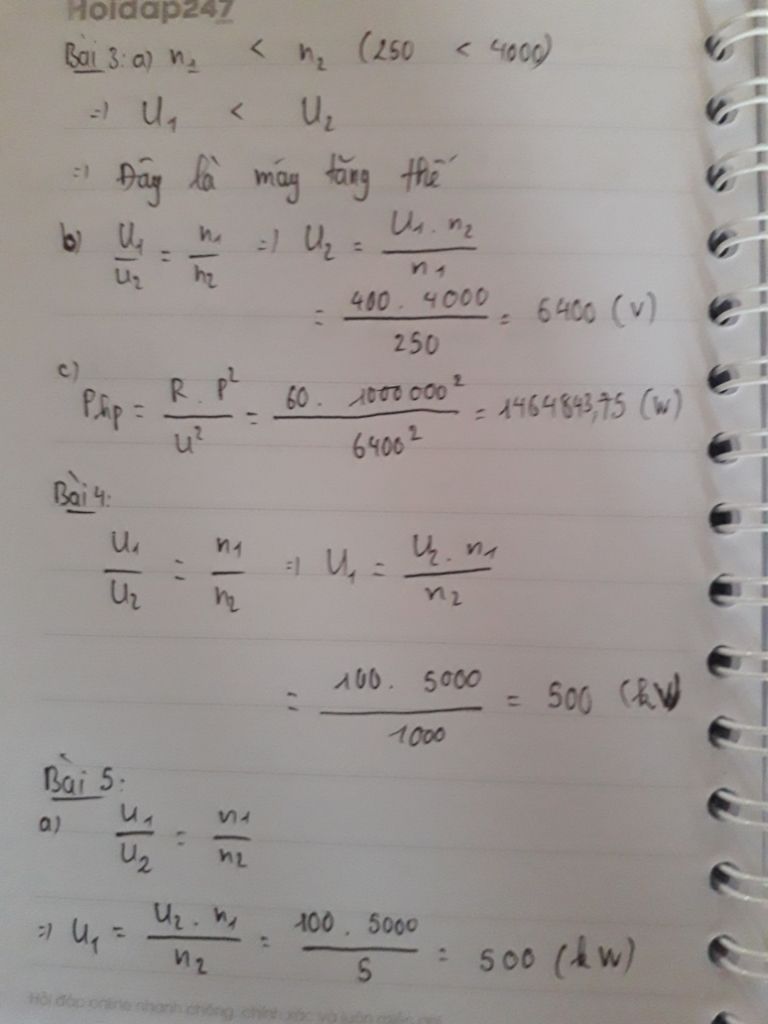 Hoidap247
Bài 3: a) n1 < n2 (250 < 4000)
=) U1 < U2
=) Đây là máy tăng thế
b) U1/U2 = n1/n2 =) U2 = U1 . n2 / n1
= 400 . 4000 / 250 = 6400 (V)
c) Php = R . P² / U² = 60 . 1000 000² / 6400² = 1464843,75 (W)
Bài 4:
U1/U2 = n1/n2 =) U1 = U2 . n1 / n2
= 100 . 5000 / 1000 = 500 (kV)
Bài 5:
a) U1/U2 = n1/n2
=) U1 = U2 . n1 / n2 = 100 . 5000 / 5 = 500 (kW)
Hỏi đáp online nhanh chóng, chính xác và luôn miễn phí